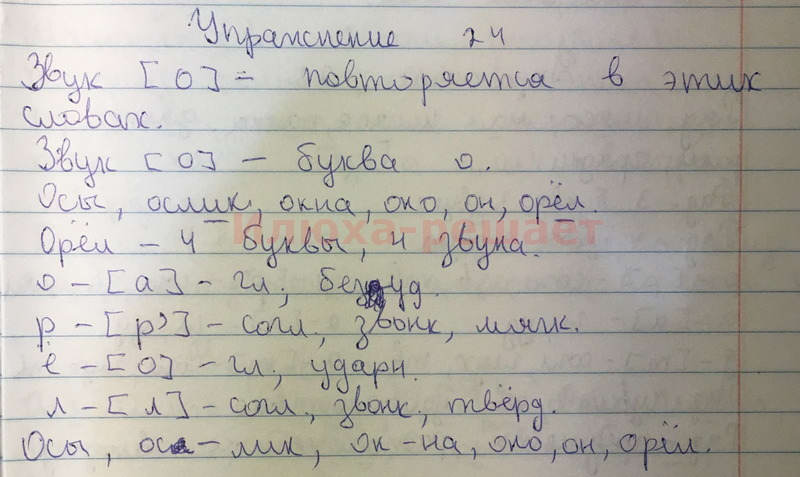 Упражнение 24
Звук [О] - повторяется в этих
словах.
Звук [О] - буква о.
Осы, ослик, окна, око, он, орёл.
Клюха-решает
Орёл - 4 буквы, 4 звука.
о - [а] - гл; безуд.
р - [р'] - согл, звонк, мягк.
ё - [О] - гл; ударн.
л - [л] - согл, звонк, твёрд.
Осы, ос-лик, ок-на, око, он, орёл.